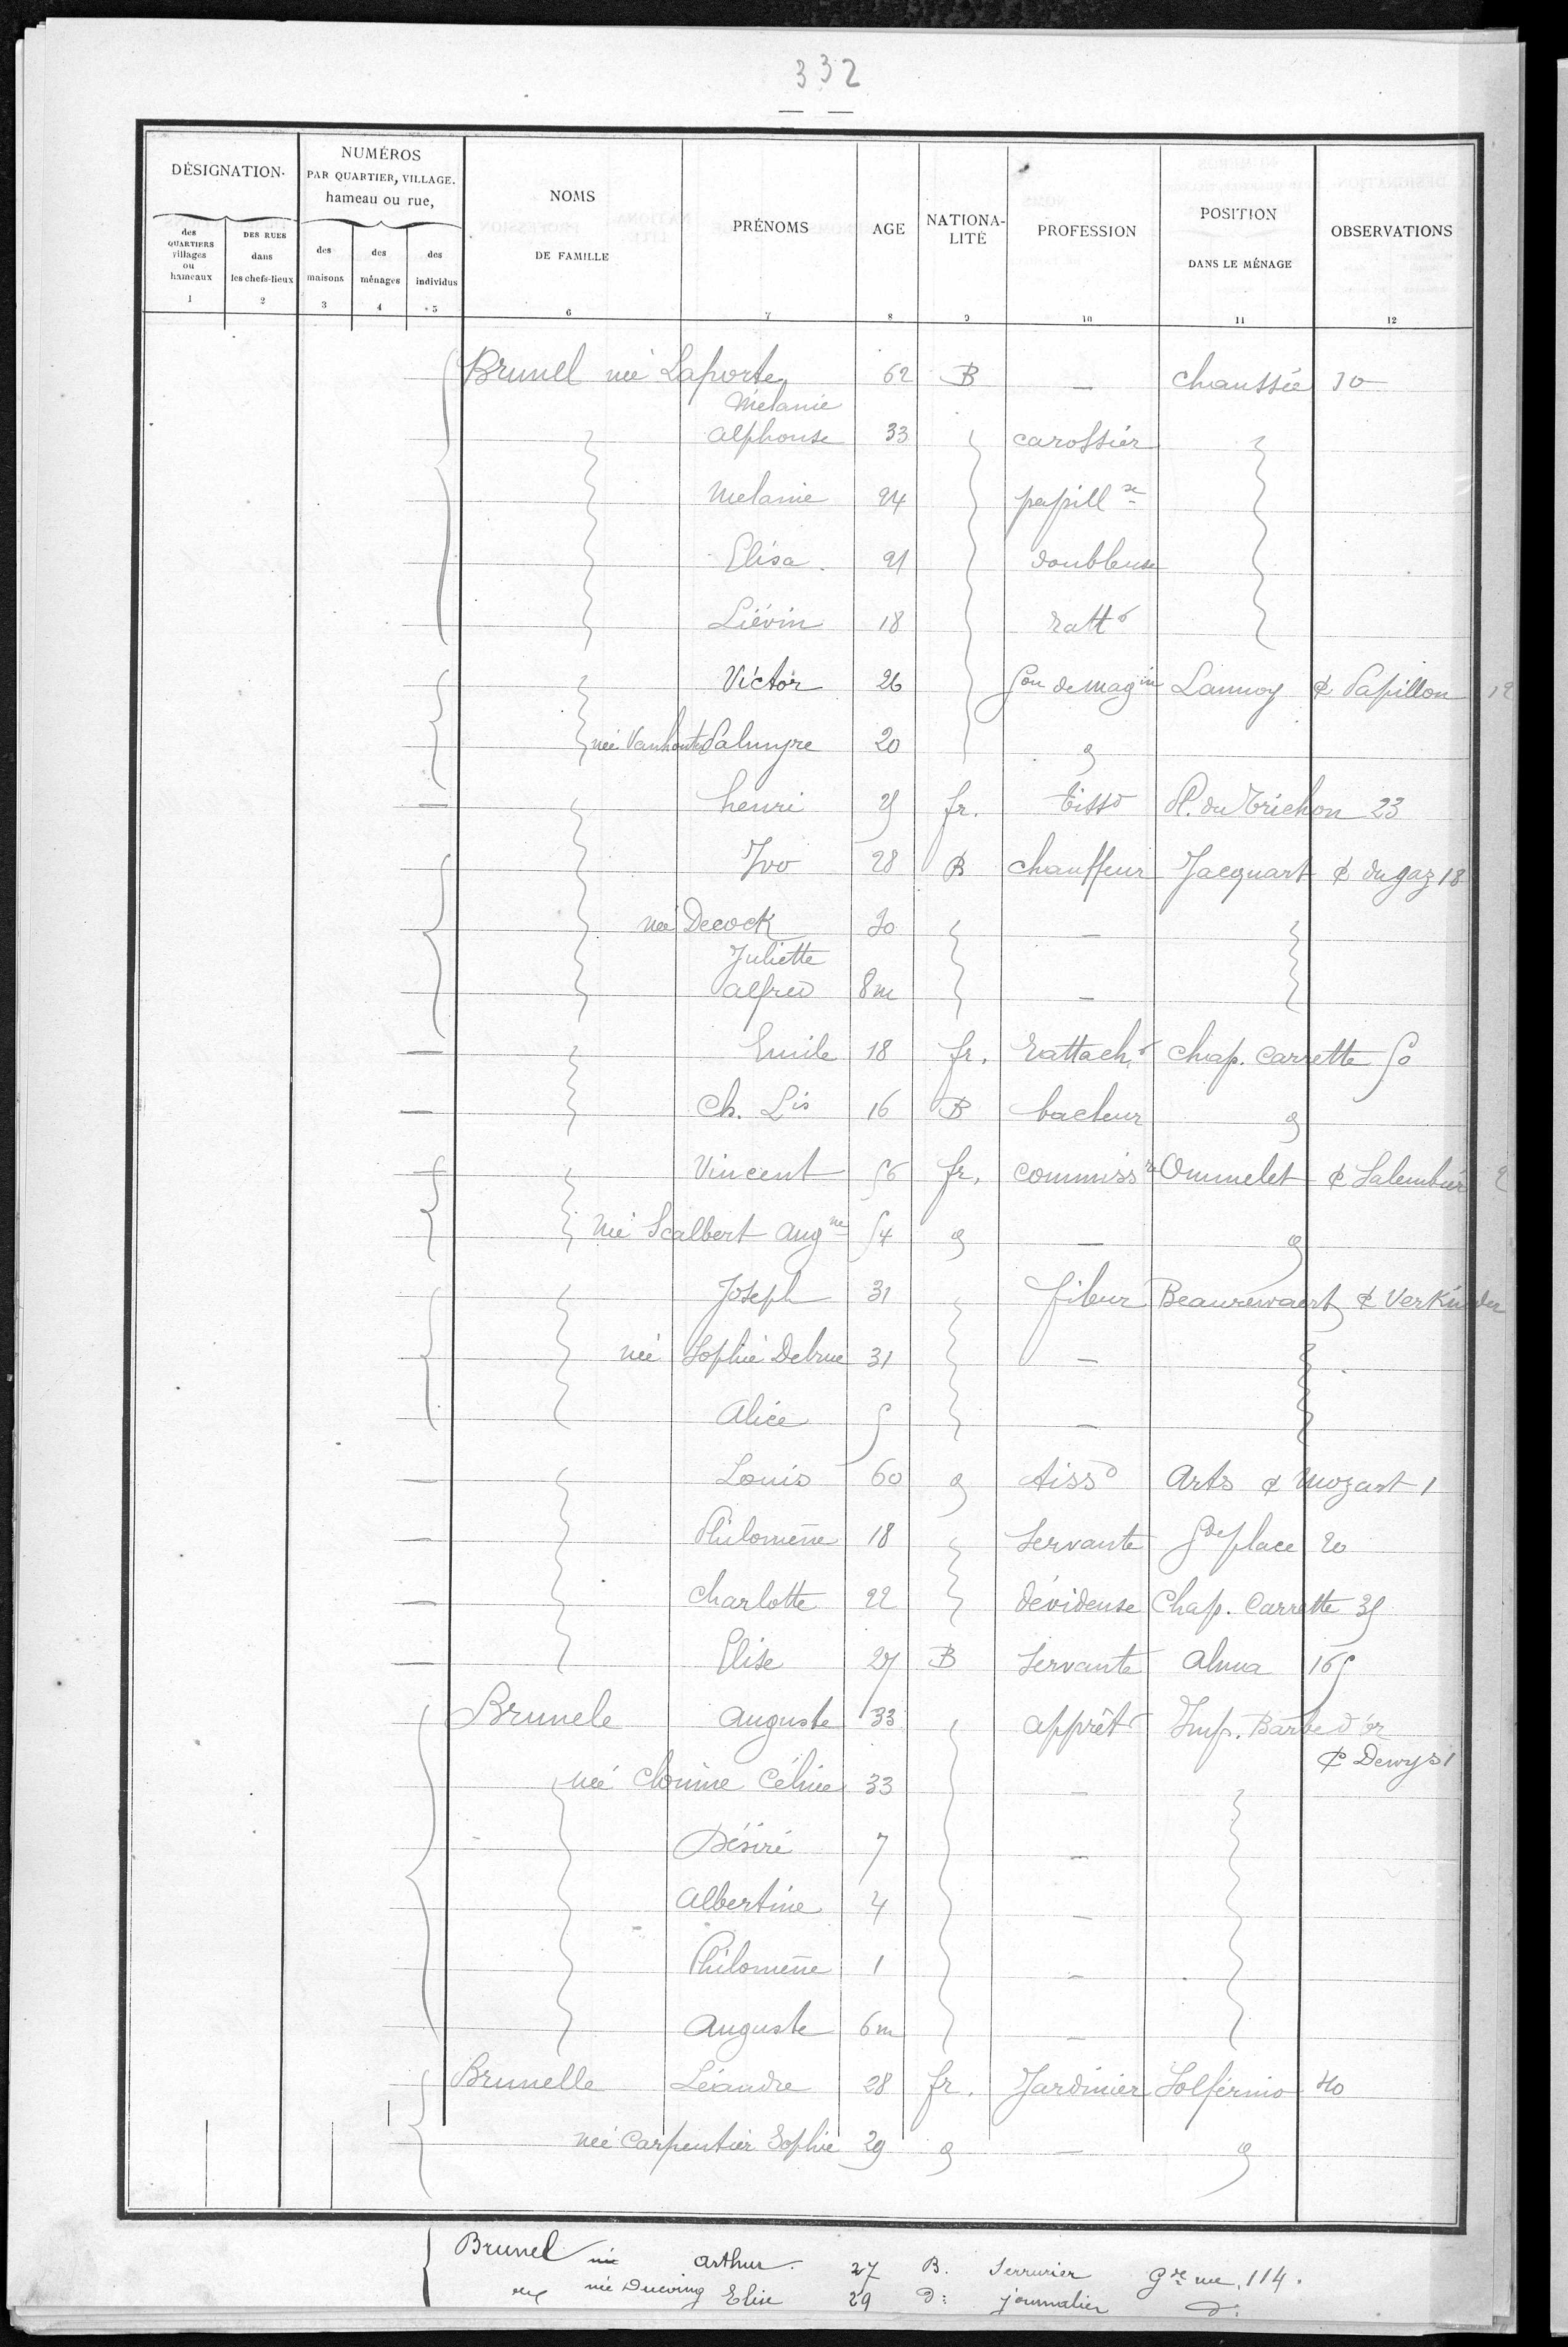 332
DÉSIGNATION
NUMÉROS
PAR QUARTIER, VILLAGE.
hameau ou rue,
des QUARTIERS villages ou hameaux
DES RUES dans les chefs-lieux
des maisons
des ménages
des individus
NOMS DE FAMILLE
PRÉNOMS
AGE
NATIONALITÉ
PROFESSION
POSITION DANS LE MÉNAGE
OBSERVATIONS
1 2 3 4 5 6 7 8 9 10 11 12
Brunel née Laporte 62 B — chaussée 30
Mélanie
Alphonse 33 carossier
Melanie 24 papill se
Elisa 21 doubleuse
Liévin 18 ratt r
Victor 26 Gon de magin Lannoy ¢ Papillon 12
née Vanhoute Palmyre 20
henri 25 fr. tissd Pl. du Trichon 23
Ivo 28 B chauffeur Jacquart ¢ du gaz 18
née Decock 30 —
Juliette
alfred 8m —
Emile 18 fr. rattachr chap. Carrette 50
Ch. Lis 16 B bacleur
Vincent 56 fr. commissre Ommelet ¢ Salembier 2
née Scalbert Augne 54 —
Joseph 31 fileur Beaurewaert ¢ Verkinder
née Sophie Debrue 31 —
Alice 5 —
Louis 60 tissd Arts ¢ Mozart 1
Philomène 18 servante Gde place 20
Charlotte 22 dévideuse Chap. Carrette 35
Elise 27 B servante Alma 165
Brunele Auguste 33 apprêtr Imp. Barbe d'or
¢ Dewys 1
née Céline 33 —
Désiré 7 —
Albertine 4 —
Philomène 1 —
Auguste 6m —
Brunelle Léandre 28 fr. Jardinier Solférino 40
née Carpentier Sophie 29 —
Brunel arthur 27 B. Serrurier Gde rue, 114.
née Ducoing Elise 29 d: journalier d: